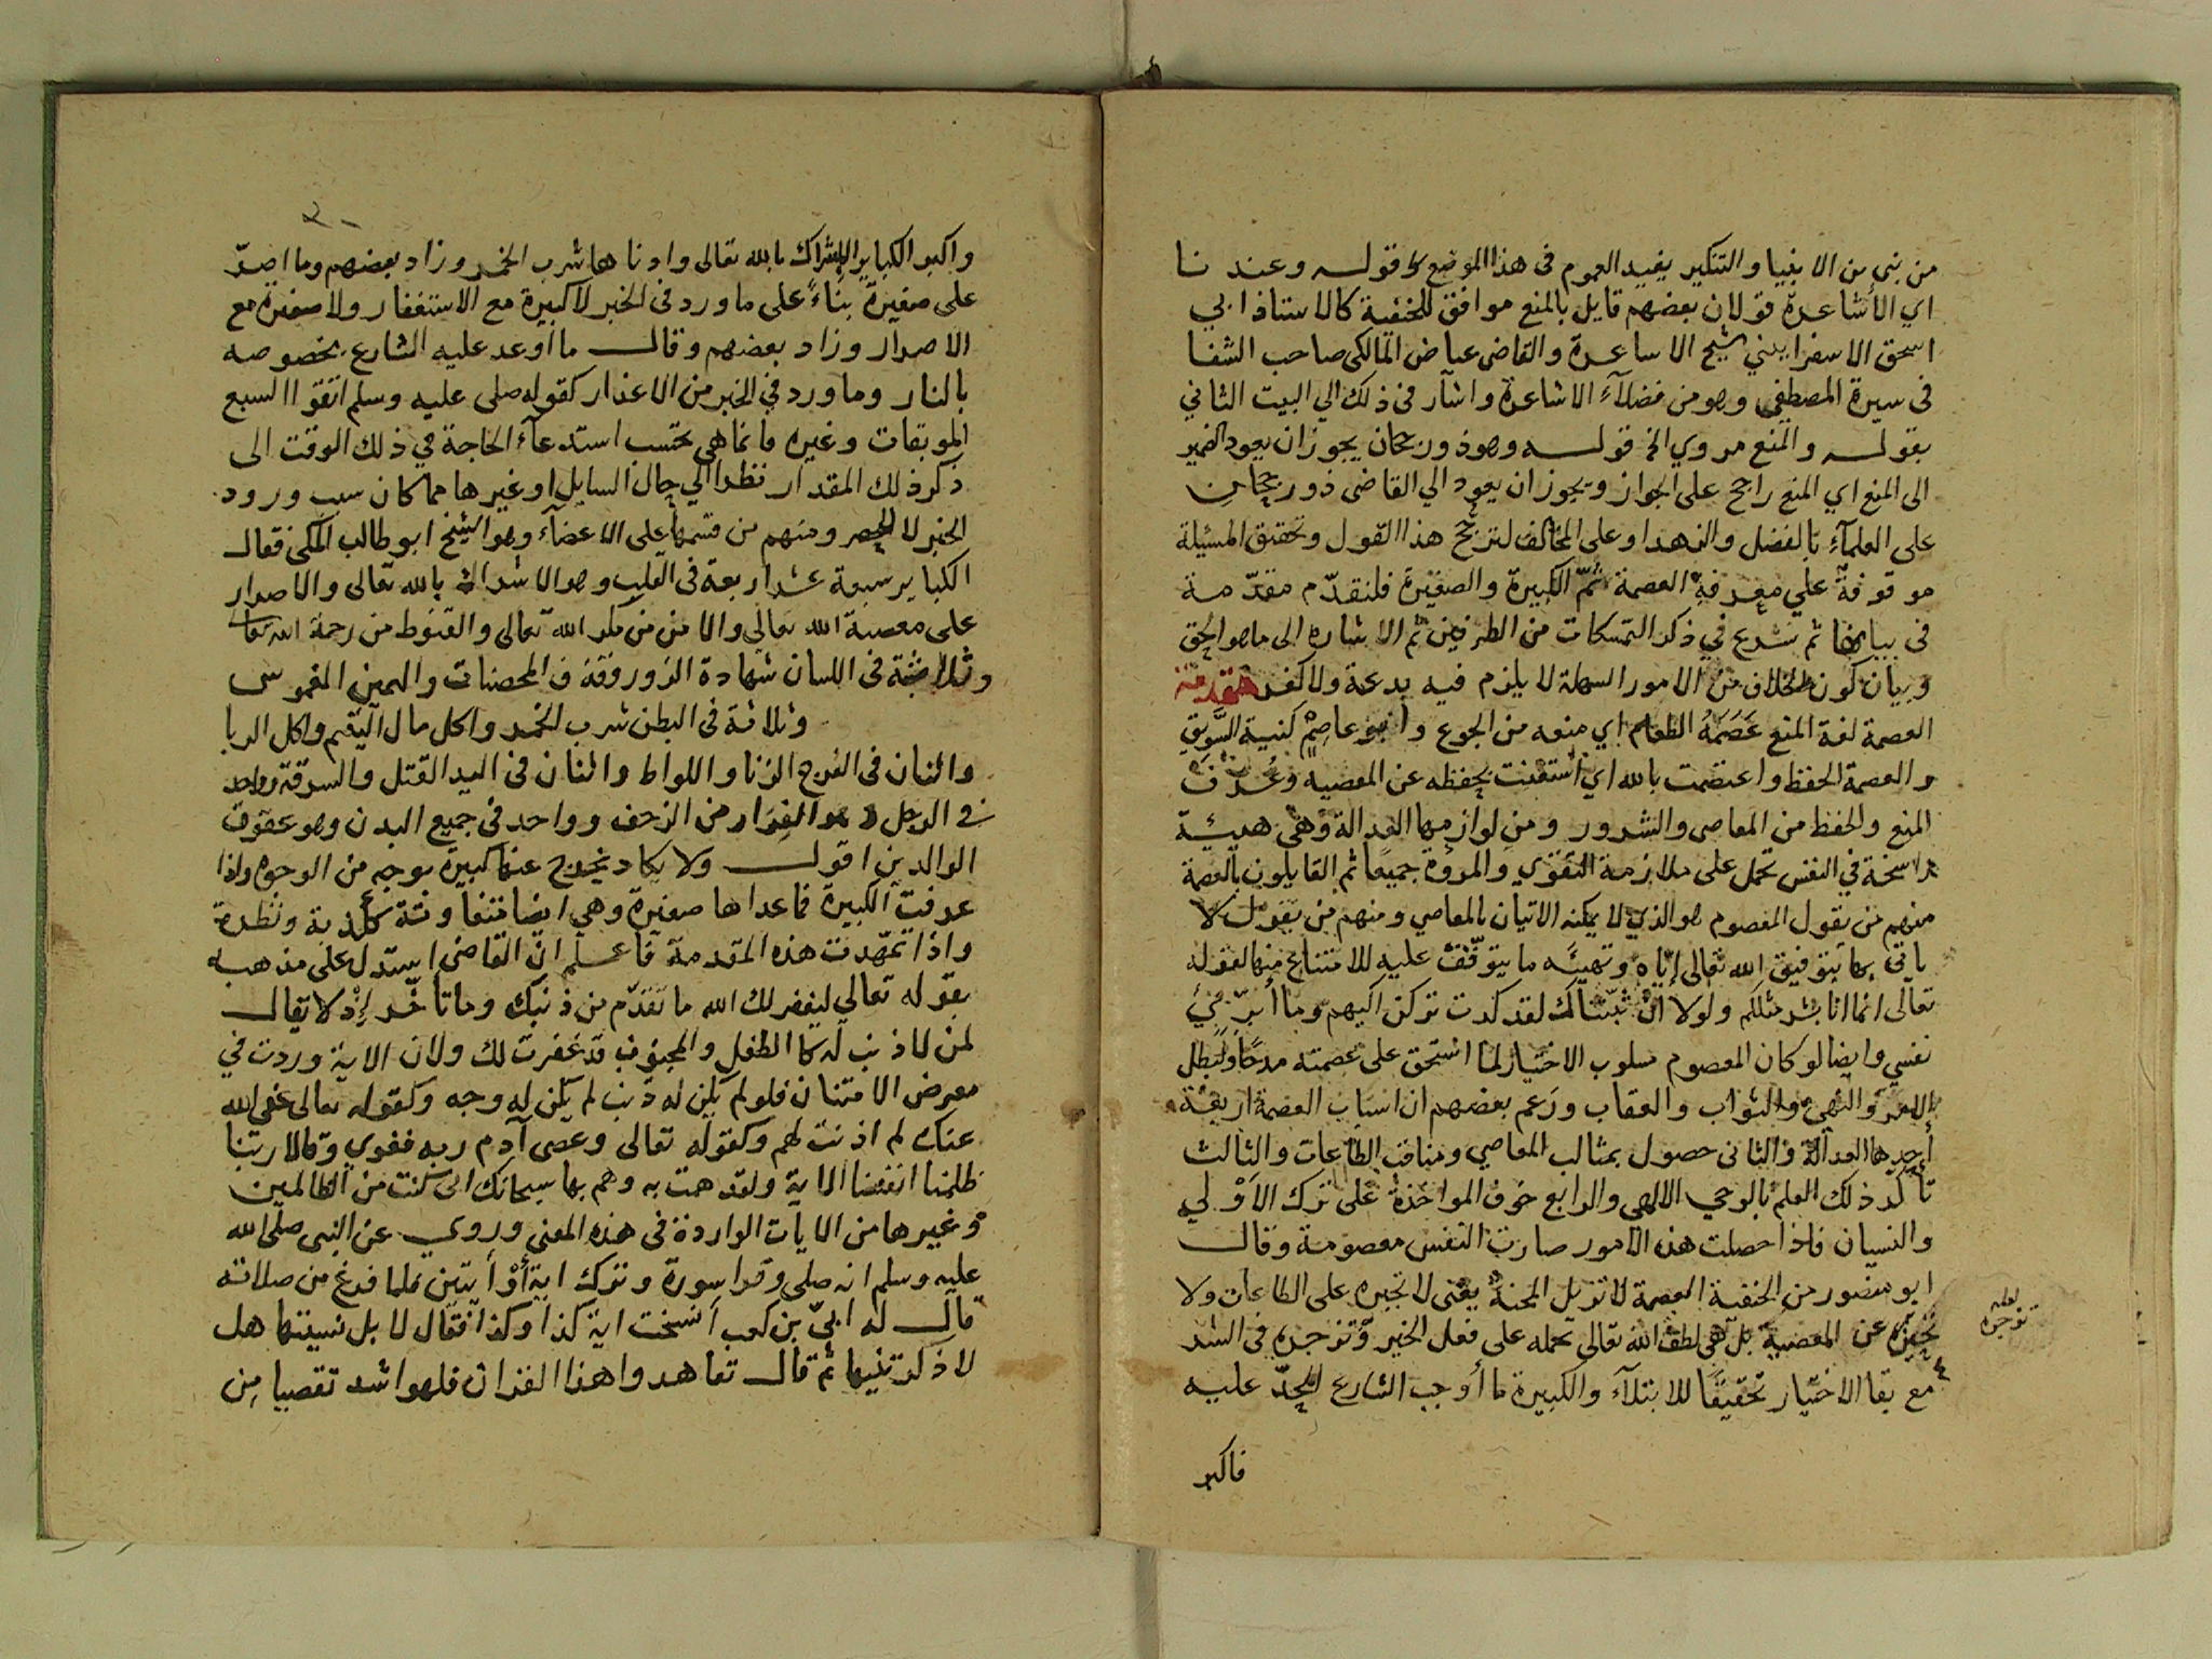 من نبي من الانبيا والتنكير يفيد العموم في هذا الموضع قوله وعندنا
اي الأشاعرة قولان بعضهم قايل بالمنع موافق للحنفية كالاستاذ ابي
اسحق الاسفرايني شيخ الاشاعرة والقاضي عياض المالكي صاحب الشفا
في سيرة المصطفى وهو من فضلآء الاشاعرة واشار في ذلك الي البيت الثاني
بقوله والمنع مروي الخ قوله وهو ذو رجحان يجوز ان يعود الضمير
الى المنع اي المنع راجح على الجواز ويجوز ان يعود الي القاضي ذو رجحان
على العلمآء بالفضل والزهد او على المخالف لترجح هذا القول وتحقيق المسئلة
موقوفة علي معرفة العصمة ثمّ الكبيرة والصغيرة فلنقدّم مقدّمة
في بيانها ثم نشرع في ذكر التمسكات من الطرفين ثم الاشاره الى ما هو الحق
وبيان كون الخلاف من الامور السهلة لا يلزم فيه بدعة ولا كفر مقدمة
العصمة لغة المنع عَصَمَهُ الطعام اي منعه من الجوع وابو عاصِمٍ كنية السَّويق
والعصمة الحفظ واعتصمت بالله اي استعنت بحفظه عن المعصيه وعُرف
المنع والحفظ من المعاصي والشرور ومن لوازمها العدالة وهي هيئة
راسخة في النفس تحمل على ملازمة التقوي والمروّة جميعًا ثم القايلون بالعصمة
منهم من يقول المعصوم هو الذي لا يمكنه الاتيان بالمعاصي ومنهم من يقول لا
ياتي بها بتوفيق الله تعالى إيّاه وتهيئه ما يتوقّف عليه للامتناع منها لقوله
تعالى انما انا بشر مثلكم ولولا انْ ثبّتناك لقد كدت تركن اليهم وما أبرّيُ
نفسي وايضا لو كان المعصوم مسلوب الاختيار لما استحق على عصمته مدحًا ولبطل
الامر والنهي والثواب والعقاب وزعم بعضهم ان اسباب العصمة اربعة
أحدها العدالة والثاني حصول بمثالب المعاصي ومناقب الطاعات والثالث
تأكّد ذلك العلم بالوحي الالهي والرابع خوف المواخذة على ترك الاَوْلي
والنسيان فاذا حصلت هذه الامور صارت النفس معصومة وقال
ابو منصور من الحنفية العصمة لا تزيل المحنة يعنى لا تجبره على الطاعات ولا
تعجزه عن المعصية بل هي لطف الله تعالى تحمله على فعل الخير وتزجره في الشر
لعله
تزجره
مع بقا الاختيار تحقيقًا للابتلآء والكبيرة ما أوجب الشارع الحدّ عليه
فاكبر
واكبر الكباير الاشراك بالله تعالى وادناها شرب الخمر وزاد بعضهم وما اصرّ
على صغيرة بناءً على ما ورد في الخبر لا كبيرة مع الاستغفار ولا صغيرة مع
الاصرار وزاد بعضهم وقال ما اوعد عليه الشارع بخصوصه
بالنار وما ورد في الخبر من الاعذار كقوله صلى عليه وسلم اتقوا السبع
الموبقات وغيره فانما هي بحسب استدعآء الحاجة في ذلك الوقت الى
ذكر ذلك المقدار نظرا الي حال السايل او غيرها مما كان سبب ورود
الخبر لا للحصر ومنهم من قسمها على الاعضآء وهو الشيخ ابو طالب المكي فقال
الكباير سبعة عشر اربعة في القلب وهو الاشراك بالله تعالى والاصرار
على معصية الله تعالي والامن من مكر الله تعالى والقنوط من رحمة الله تعا
وثلاثة في اللسان شهادة الزور وقذف المحصنات واليمين الغموس
وثلاثة في البطن شرب الخمر واكل مال اليتيم واكل الربا
واثنان في الفرج الزنا واللواط واثنان في اليد القتل والسرقة وواحد
في الرجل وهو الفرار من الزحف وواحد في جميع البدن وهو عقوق
الوالدين اقول ولا يكاد يخرج عنها كبيرة بوجه من الوجوه واذا
عرفت الكبيرة فماعداها صغيرة وهي ايضا متفاوتة ككذبة ونظرة
واذا تمهّدت هذه المقدمة فاعلم انّ القاضي استدل على مذهبه
بقوله تعالي ليغفر لك الله ما تقدّم من ذنبك وما تأخّر إذْ لا يقال
لمن لا ذنب له كالطفل والمجنون قد غفرت لك ولان الاية وردت في
معرض الامتنان فلو لم يكن له ذنب لم يكن له وجه وكقوله تعالى عفى الله
عنك لم اذنت لهم وكقوله تعالى وعصى آدم ربه فغوي وقالا ربنا
ظلمنا انفسنا الاية ولقد همت به وهم بها سبحانك انى كنت من الظالمين
وغيرها من الايات الواردة في هذه المعني وروي عن النبي صلى الله
عليه وسلم انه صلى وقرا سورة وترك اية أوْ أيتين فلما فرغ من صلاته
قال له ابيّ بن كعب أنسخت اية كذا وكذا فقال لا بل نسيتها هل
لا ذكرتنيها ثم قال تعاهدوا هذا القران فلهو اشد تفصيا من